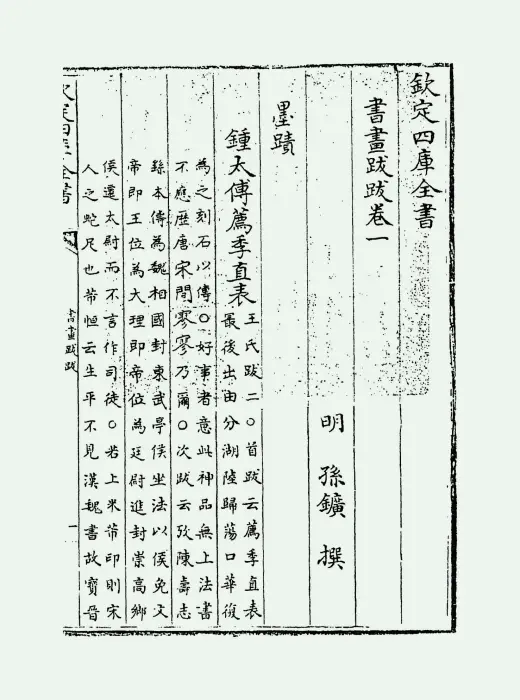 欽定四庫全書
書畫跋跋卷一
明 孫鑛 撰
墨蹟
鍾太傅薦季直表
王氏跋二〇首跋云薦季直表
最後出由分湖陸歸蕩口華復
為之刻石以傳〇好事者意此神品無上法書
不應歴唐宋間寥寥乃爾〇次跋云攷陳壽志
繇本傳為魏相國封東武亭侯坐法以侯免文
帝即王位為大理即帝位為廷尉進封崇高鄉
侯遷太尉而不言作司徒〇若上米芾印則宋
人之蛇足也芾恒云生平不見漢魏書故寶晉
書畫跋跋
一